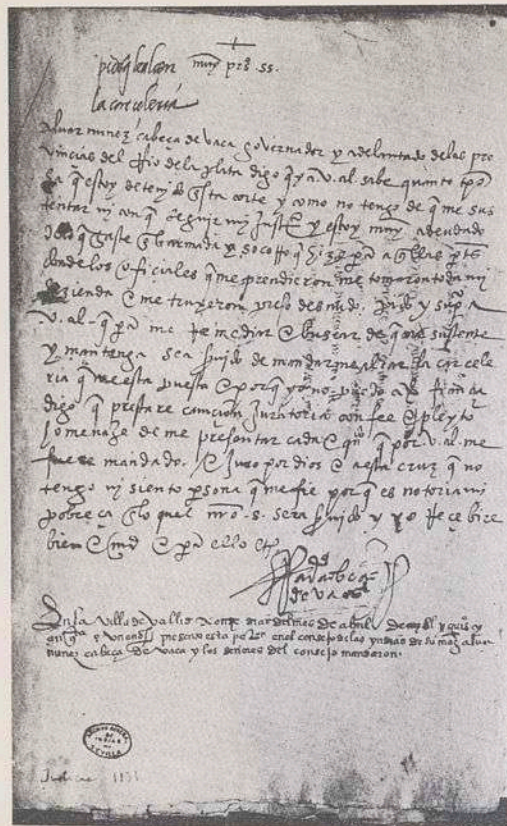 muy pos. ss.
la carceleria
alvar nuñez cabeça de vaca governador y adelantado delas pro
vincias del Rio dela plata digo q ya v. al. sabe quanto tpo
ha q estoy detenido esta corte y como no tengo de q me sus
tentar ni con q seguir my justª y estoy muy adeudado
de lo q gaste armada y socorro q hize pª aqllas ptes
donde los oficiales q me prendieron me tomaron toda my
hazienda e me truxeron preso desnudo. pido y supco a
v. al. q pª me Remediar e buscar de q me sustente
y mantenga sea svido de mandarme alçar la carcele
ria q me esta puesta e porq yo no puedo dar fianças
digo q prestare caucion Juratoria con fee e pleyto
omenaje de me presentar cada e qndo q por v. al. me
fuere mandado. e Juro por dios e a esta cruz q no
tengo ni siento psona q me fie porq es notoria mi
pobreça en lo qual nro s. sera svido y yo Recebire
bien e md e pª ello etc
cabeça
de vaca
En la villa de vallid a onze dias del mes de abril de myll y quis y
presento esta peton en el consejo de las yndias de su mag alvar
nunez cabeça de vaca y los señores del consejo mandaron.
ARCHIVO GENERAL
DE
INDIAS
SEVILLA
1131